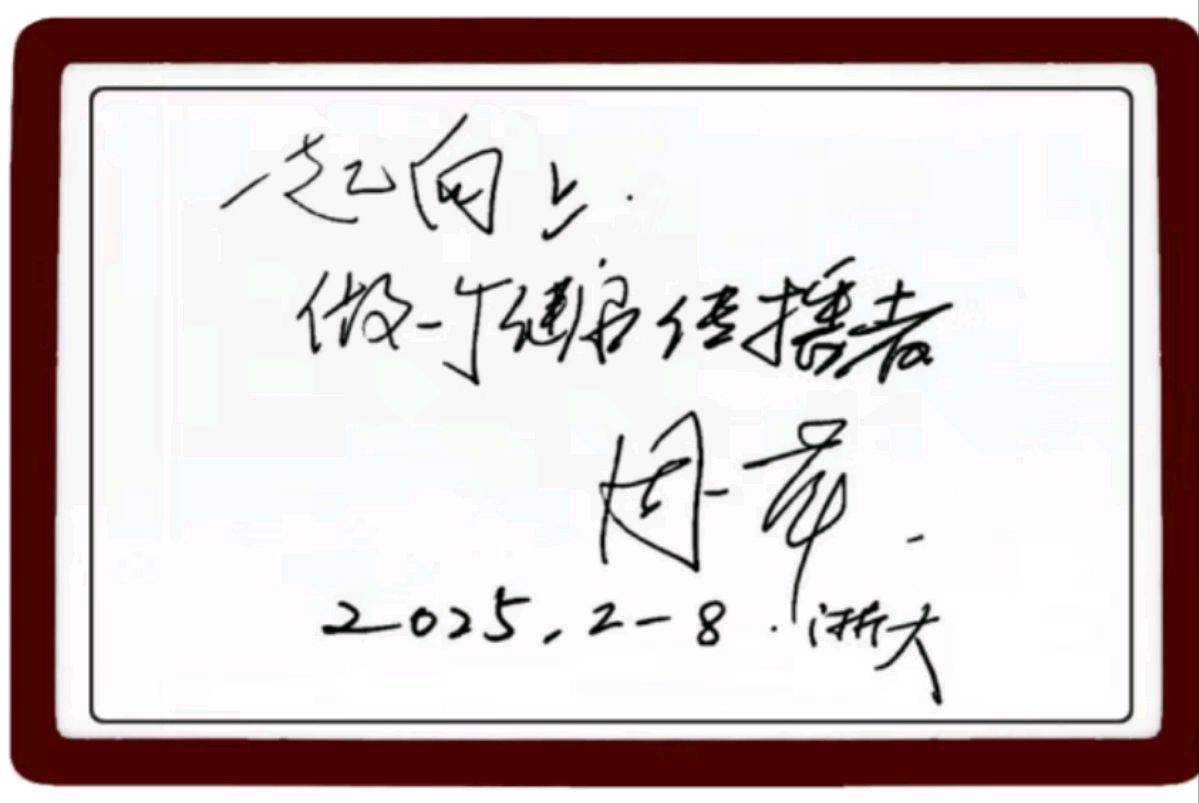 一起向上.
做一个健康传播者
周
2025.2-8.浙大